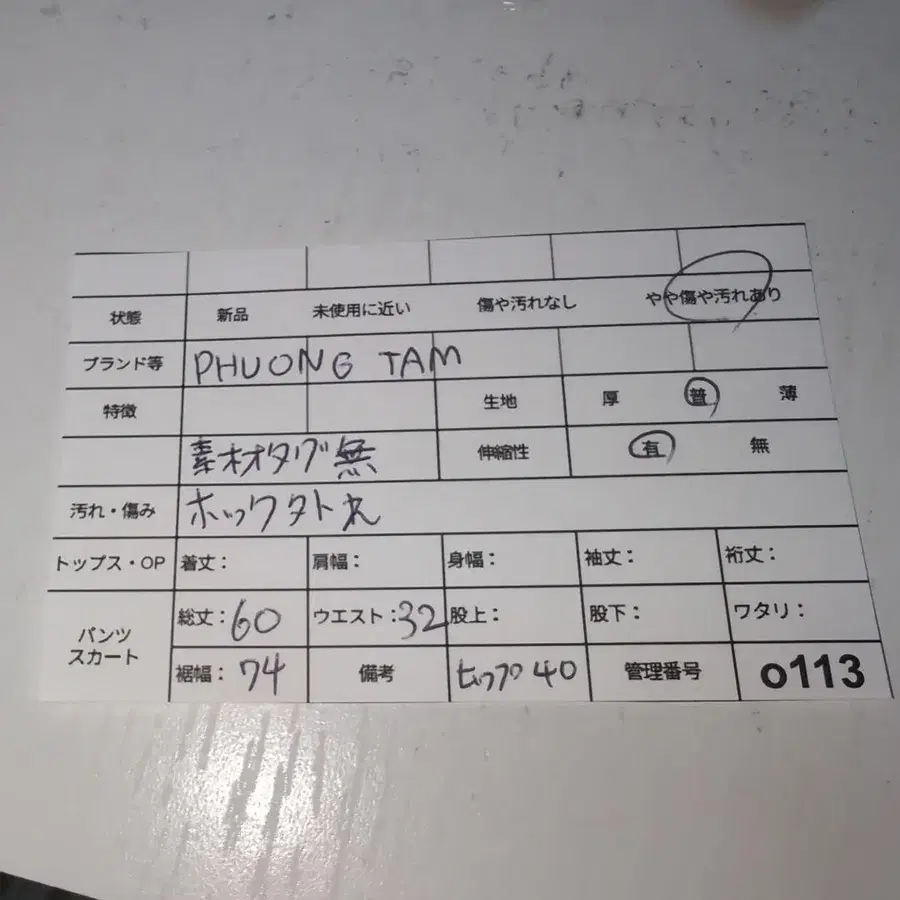 状態 新品 未使用に近い 傷や汚れなし やや傷や汚れあり
ブランド等 PHUONG TAM
特徴 生地 厚 普 薄
素材タグ無 伸縮性 有 無
汚れ・傷み ホック
トップス・OP 着丈: 肩幅: 身幅: 袖丈: 裄丈:
パンツ スカート 総丈:60 ウエスト:32 股上: 股下: ワタリ:
裾幅:74 備考 ヒップ40 管理番号 o113